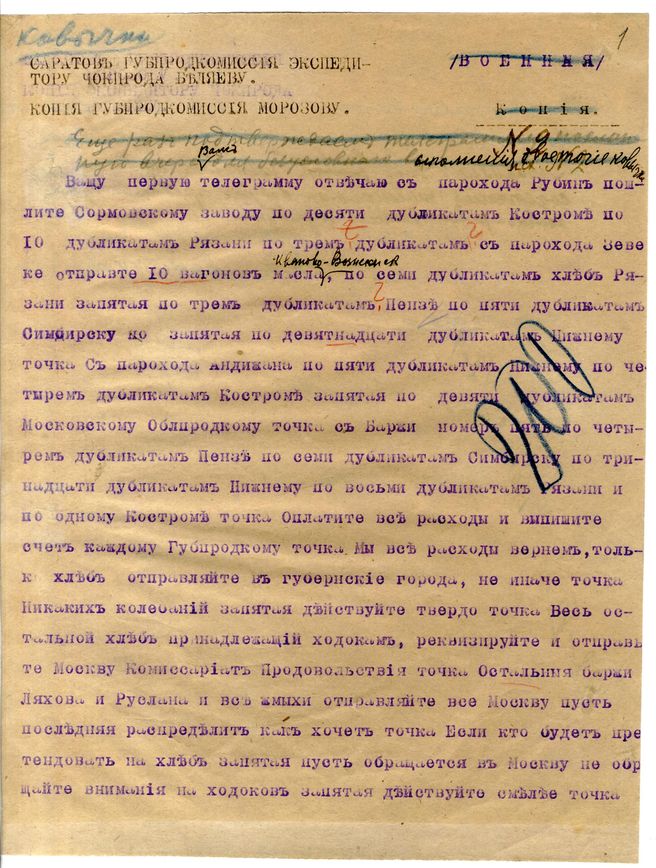 кавычки
1
САРАТОВЪ ГУБПРОДКОМИССІЯ ЭКСПЕДИ- /ВОЕННАЯ/
ТОРУ ЧОКПРОДА БѢЛЯЕВУ.
КОПІЯ ГУБПРОДКОМИССІЯ МОРОЗОВУ. Копія.
Еще разъ подтверждаемъ
Вашу первую телеграмму отвѣчаю съ парохода Рубинъ пош-
лите Сормовскому заводу по десяти дубликатамъ Костромѣ по
10 дубликатамъ Рязани по тремъ дубликатамъ съ парохода Зеве
Иваново-Вознесенск
ке отправте 10 вагоновъ масла, по семи дубликатамъ хлѣбъ Ря-
зани запятая по тремъ дубликатамъ Пензѣ по пяти дубликатамъ
Симбирску но запятая по девятнадцати дубликатамъ Нижнему
точка Съ парохода Андижана по пяти дубликатамъ Нижнему по че-
тыремъ дубликатамъ Костромѣ запятая по девяти дубликатамъ
Московскому Облпродкому точка съ Баржи номеръ пять по четы-
ремъ дубликатамъ Пензѣ по семи дубликатамъ Симбирску по три-
надцати дубликатамъ Нижнему по восьми дубликатамъ Рязани и
по одному Костромѣ точка Оплатите всѣ расходы и выпишите
счетъ каждому Губпродкому точка Мы всѣ расходы вернемъ, толь-
к хлѣбъ отправляйте въ губернскіе города, не иначе точка
Никакихъ колебаній запятая дѣйствуйте твердо точка Весь ос-
тальной хлѣбъ принадлежащій ходокамъ, реквизируйте и отправь
те Москву Комиссаріатъ Продовольствія точка Остальныя баржи
Ляхова и Руслана и всѣ жмыхи отправляйте все Москву пусть
послѣдняя распредѣлитъ какъ хочетъ точка Если кто будетъ пре
тендовать на хлѣбъ запятая пусть обращается въ Москву не обр
щайте вниманія на ходоковъ запятая дѣйствуйте смѣлѣе точка